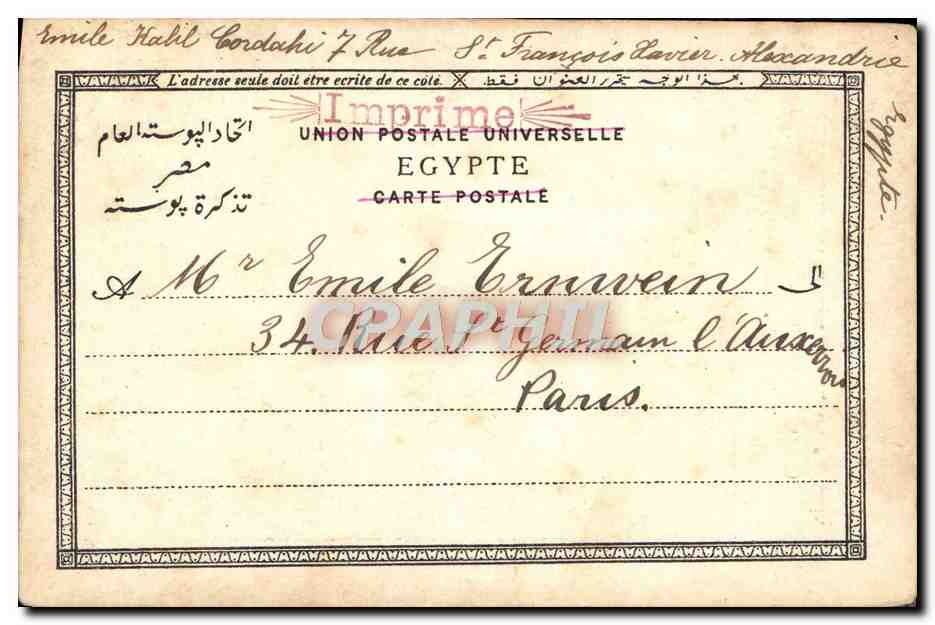 Emile Kalil Cordahi 7 Rue St. François Xavier. Alexandrie
Egypte.
L'adresse seule doit être ecrite de ce côté.
بهذا الوجه يتحرر العنوان فقط
Imprime
UNION POSTALE UNIVERSELLE
EGYPTE
CARTE POSTALE
اتحاد البوسته العام
مصر
تذكرة بوسته
A Mr Emile Ernwein الى
34. Rue St Germain l'Auxerrois
Paris.
CPAPHIL